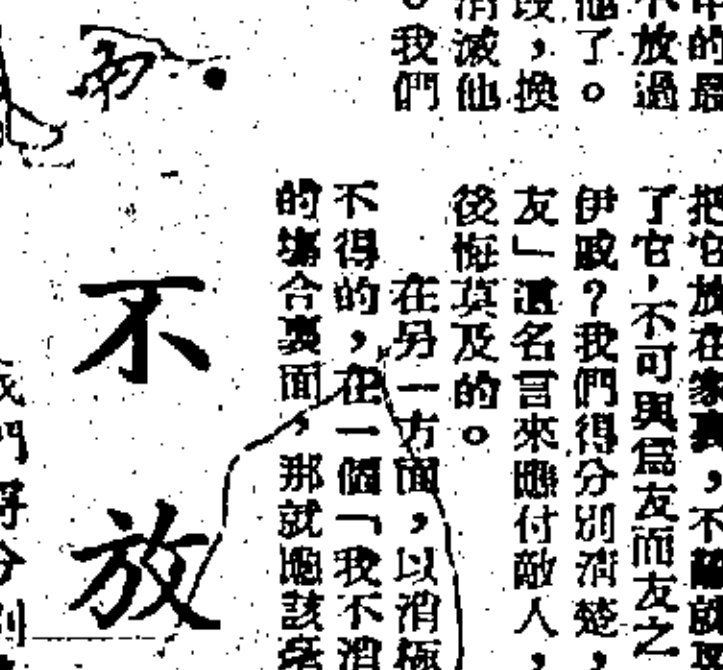 中的最
不放過
他了。
段，換
消滅他
。我們
把它放在家裏，不
了它，不可與爲友而友之
伊戚？我們得分別清楚，
友」這名言來應付敵人，
後悔莫及的。
在另一方面，以消極
不得的，在一個「我不消
的場合裏面，那就應該毫
不放
我們得分別